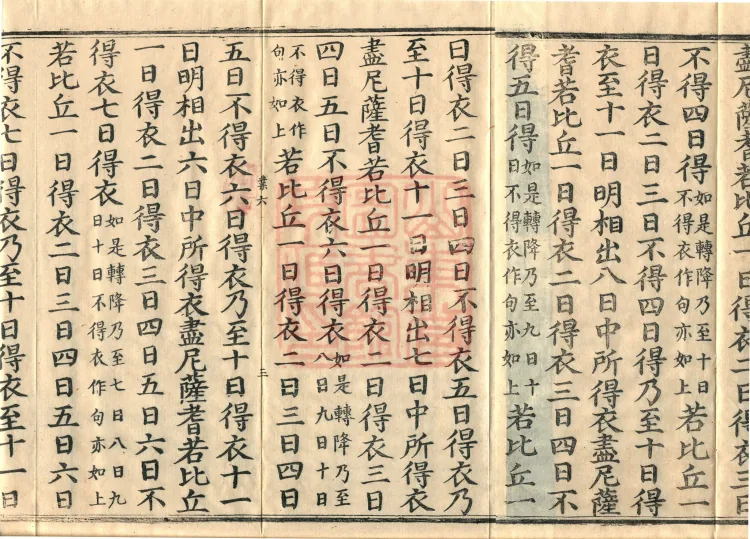 盡尼薩耆若比丘一日得衣二日得衣三日
不得四日得如是轉降乃至十日不得衣作句亦如上若比丘一
日得衣二日三日不得四日得乃至十日得
衣至十一日明相出八日中所得衣盡尼薩
耆若比丘一日得衣二日得衣三日四日不
得五日得如是轉降乃至九日十日不得衣作句亦如上若比丘一
日得衣二日三日四日不得衣五日得衣乃
至十日得衣十一日明相出七日中所得衣
盡尼薩耆若比丘一日得衣二日得衣三日
四日五日不得衣六日得衣如是轉降乃至八日九日十日
不得衣作句亦如上若比丘一日得衣二日三日四日
業六
三
五日不得衣六日得衣乃至十日得衣十一
日明相出六日中所得衣盡尼薩耆若比丘
一日得衣二日得衣三日四日五日六日不
得衣七日得衣如是轉降乃至七日八日九日十日不得衣作句亦如上
若比丘一日得衣二日三日四日五日六日
不得衣七日得衣乃至十日得衣至十一日